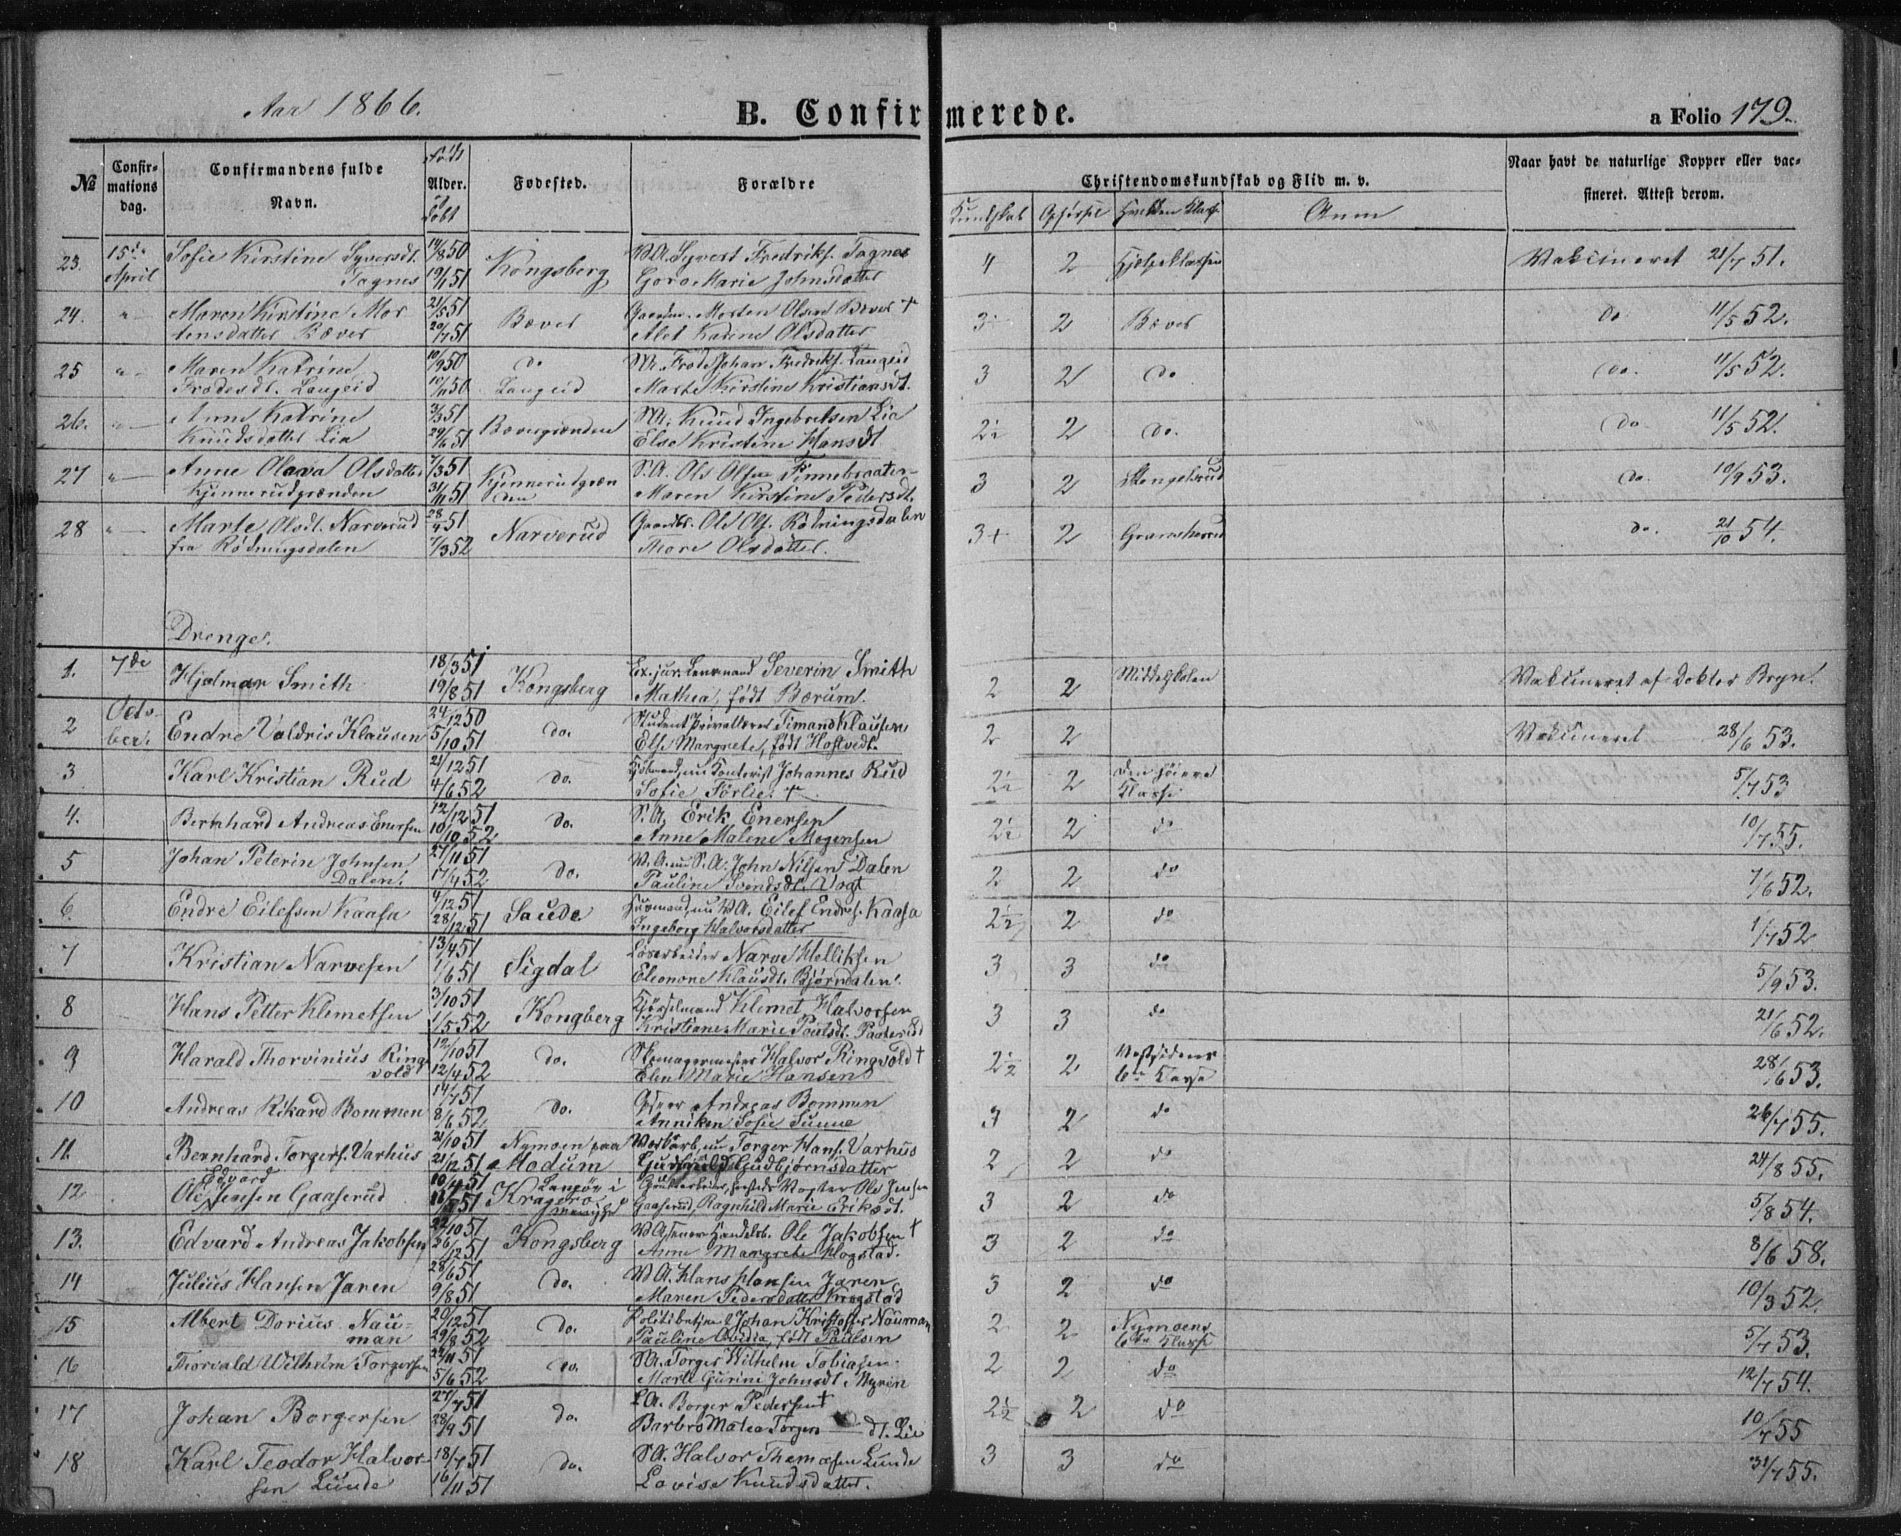 Aar 1866.
B. Confirmerede.
a Folio 179.
№
Confirmations dag.
Confirmandens fulde Navn.
Født Alder. Døbt
Fødested.
Forældre
Christendomskundskab og Flid m. v.
Kundskab Opførsel Hvilken Klasse Anm
Naar havt de naturlige Kopper eller vaccineret. Attest derom.
23. 15de April Sofie Kirstine Syversdt. 14/8 50 Kongsberg B.A. Syvert Fredriks. Tagnes 4 2 Hjelpeklassen Vakcineret 21/7 51.
Tagnes 19/1 51 Goro Marie Johnsdatter
24. " Maren Kirstine Mor 21/5 51 Bæver Gaardm. Morten Olsen Bæver + 3 2 Bæver do 11/5 52.
tensdatter Bæver 20/7 51 Alet Karine Olsdatter
25 " Maren Katrine 10/9 50 do Frode Johan Fredriks. Laugeid 3 2 do do. 11/5 52.
Frodesdt. Laugeid 10/11 50 Laugeid Marte Kirstine Kristiansdt.
26. " Anne Katrine 3/5 51 Bævergrænden Knud Ingebretsen Lia 2½ 2 do. do 11/5 52.
Knudsdatter Lia 29/6 51 Else Kristine Hansdt
27 " Anne Olava Olsdatter 7/3 51 Kjennerudgræn S.A. Ole Olsen Finnebraaten 3 2 Stengelsrud do. 10/9 53.
Kjennerudgrænden 31/11 51 den Maren Kirstine Pedersdt.
28 " Marte Olsdt. Narverud 28/4 51 Narverud Gaardbr. Ole Ols. Rødningsdalen 3+ 2 do. 21/10 54.
fra Rødningsdalen 7/3 52 Thore Olsdatter.
Drenge.
1. 7de Hjalmar Smith 18/3 51 Kongsberg Ex.jur. Lensmand Severin Smith 2 2 Middelskolen Vakcineret af Doktor Bryn.
19/8 51 Mathea, født Bærum.
2 October. Endre Valdris Klausen 24/12 50 do. Student Privatlærer Timand Klausen 2 2 Vakcineret 28/6 53.
5/10 51 Else Margrete, født Hostvedt.
3 Karl Kristian Rud 21/12 51 do. Kjøbmand, nu Kontorist Johannes Rud 2½ 2 den høiere Klasse 5/7 53
4/6 52 Sofie Førlie. +
4. Bernhard Andreas Enersen 12/12 51 do. S.A. Erik Enersen 2½ 2 do 10/7 55.
10/10 52 Anne Malene Mogensen
5 Johan Peterin Johnsen 27/11 51 do. B.A. nu S.A. John Nilsen Dalen 2 2 do 7/6 52.
Dalen. 17/4 52 Pauline Svendsdt. Vogt
6. Endre Eilefsen Kaasa 4/12 51 Saude Husmand, nu B.A. Eilef Endres. Kaasa 2½ 2 do 1/7 52
28/12 51 Ingeborg Halvorsdatter
7 Kristian Narvesen 13/4 51 Sigdal Løsarbeider Narve Helliksen 3 3 do 5/9 53.
1/6 51 Eleonore Klausdt. Bjørndalen.
8 Hans Petter Klemetsen 3/10 51 Kongberg Kjørselmand Klemet Halvorsen 3 3 do 21/6 52.
1/5 52 Kristiane Marie Poulsdt.
9 Harald Thorvinius Ring- 12/10 51 do. Skomagermester Halvor Ringvold + 2½ 2 Vestsidens 6te Klasse 28/6 53.
vold 12/4 52 Elen Marie Hansen
10 Andreas Rikard Bommen 14/7 51 do. Andreas Bommen 3 2 do 26/7 55.
8/6 52 Anniken Sofie Sunne
11. Bernhard Torgers. Varhus 21/10 51 Nymoen paa nu Torger Hans. Varhus 2 2 do 24/8 55.
21/12 51 Modum Gunhild Gudbjørnsdatter
12 Ole Edvard Jensen Gaaserud 10/4 51 Langøy i Ole Jensen 3 2 do 5/8 54.
7 51 Kragerø Gaaserud, Ragnhild Marie Eriksdt.
13. Edvard Andreas Jakobsen 22/10 51 Kongsberg B.A. senere Handelsb. Ole Jakobsen + 3 2 do 8/6 58.
26/12 51 Anne Margrete Hogstad.
14 Julius Hansen Jaren 28/6 51 do. B.A. Hans Hansen Jaren 3 2 do 10/3 52.
9/8 51 Maren Pedersdatter Kringstad
15 Albert Dorius Nau- 20/12 51 do. Politibetjent Johan Kristoffer Nauman 2 2 Nymoens 6te Klasse 5/7 53.
man 29/8 52 Pauline Ovidia, født Paulsen
16 Thorvald Wilhelm Torgersen 24/11 51 do. Torger Wilhelm Tobiasen 2 2 do 12/7 54.
5/6 52 Marte Gurine Johnsdt. Myren
17 Johan Borgersen 27/7 51 do. Borger Pedersen + 2½ 2 do 10/7 55
28/9 51 Barbro Matea Torgersdt. Lie
18 Karl Teodor Halvor- 18/7 51 do. Halvor Thomasen Lunde 3 3 do 31/7 55.
sen Lunde 16/11 51 Lovise Knudsdatter.